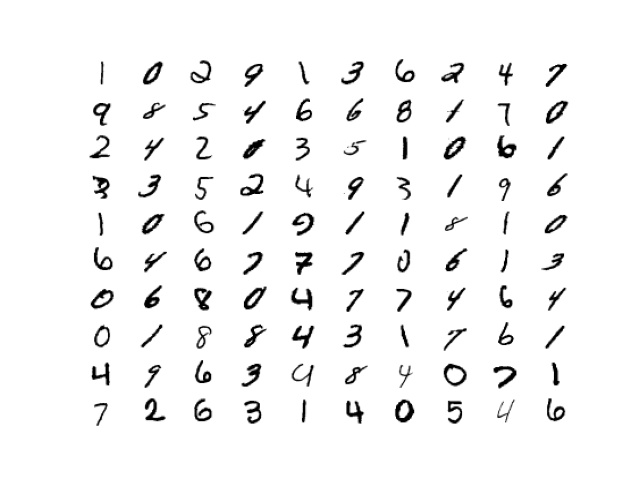 1 0 2 9 1 3 6 2 4 7
9 8 5 4 6 6 8 1 7 0
2 4 2 0 3 5 1 0 6 1
3 3 5 2 4 9 3 1 9 6
1 0 6 1 9 1 1 8 1 0
6 4 6 7 7 7 0 6 1 3
0 6 8 0 4 7 7 4 6 4
0 1 8 8 4 3 1 7 6 1
4 9 6 3 4 8 4 0 7 1
7 2 6 3 1 4 0 5 4 6